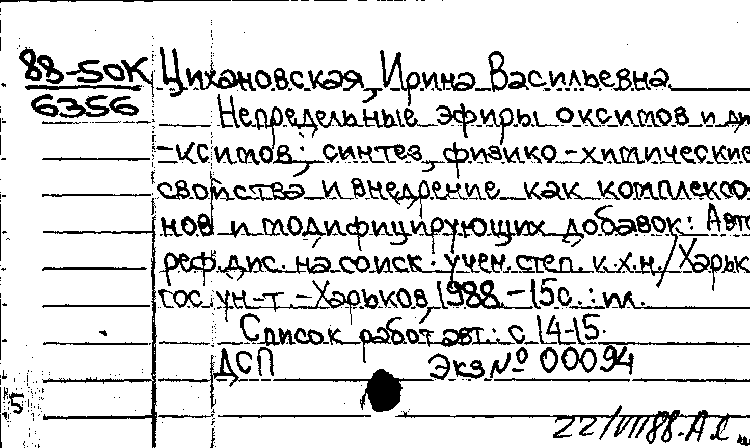 88-50К Цихановская, Ирина Васильевна
6356
Непредельные эфиры оксимов и ди
-ксимов; синтез, физико-химические
свойства и внедрение как комплексо
нов и модифицирующих добавок: Авто
реф. дис. на соиск. учен. степ. к.х.н. / Харьк
гос ун-т. - Харьков, 1988. - 15с. : ил.
Список работ авт.: с 14-15.
ДСП Экз № 00094
5
22/VII 88.